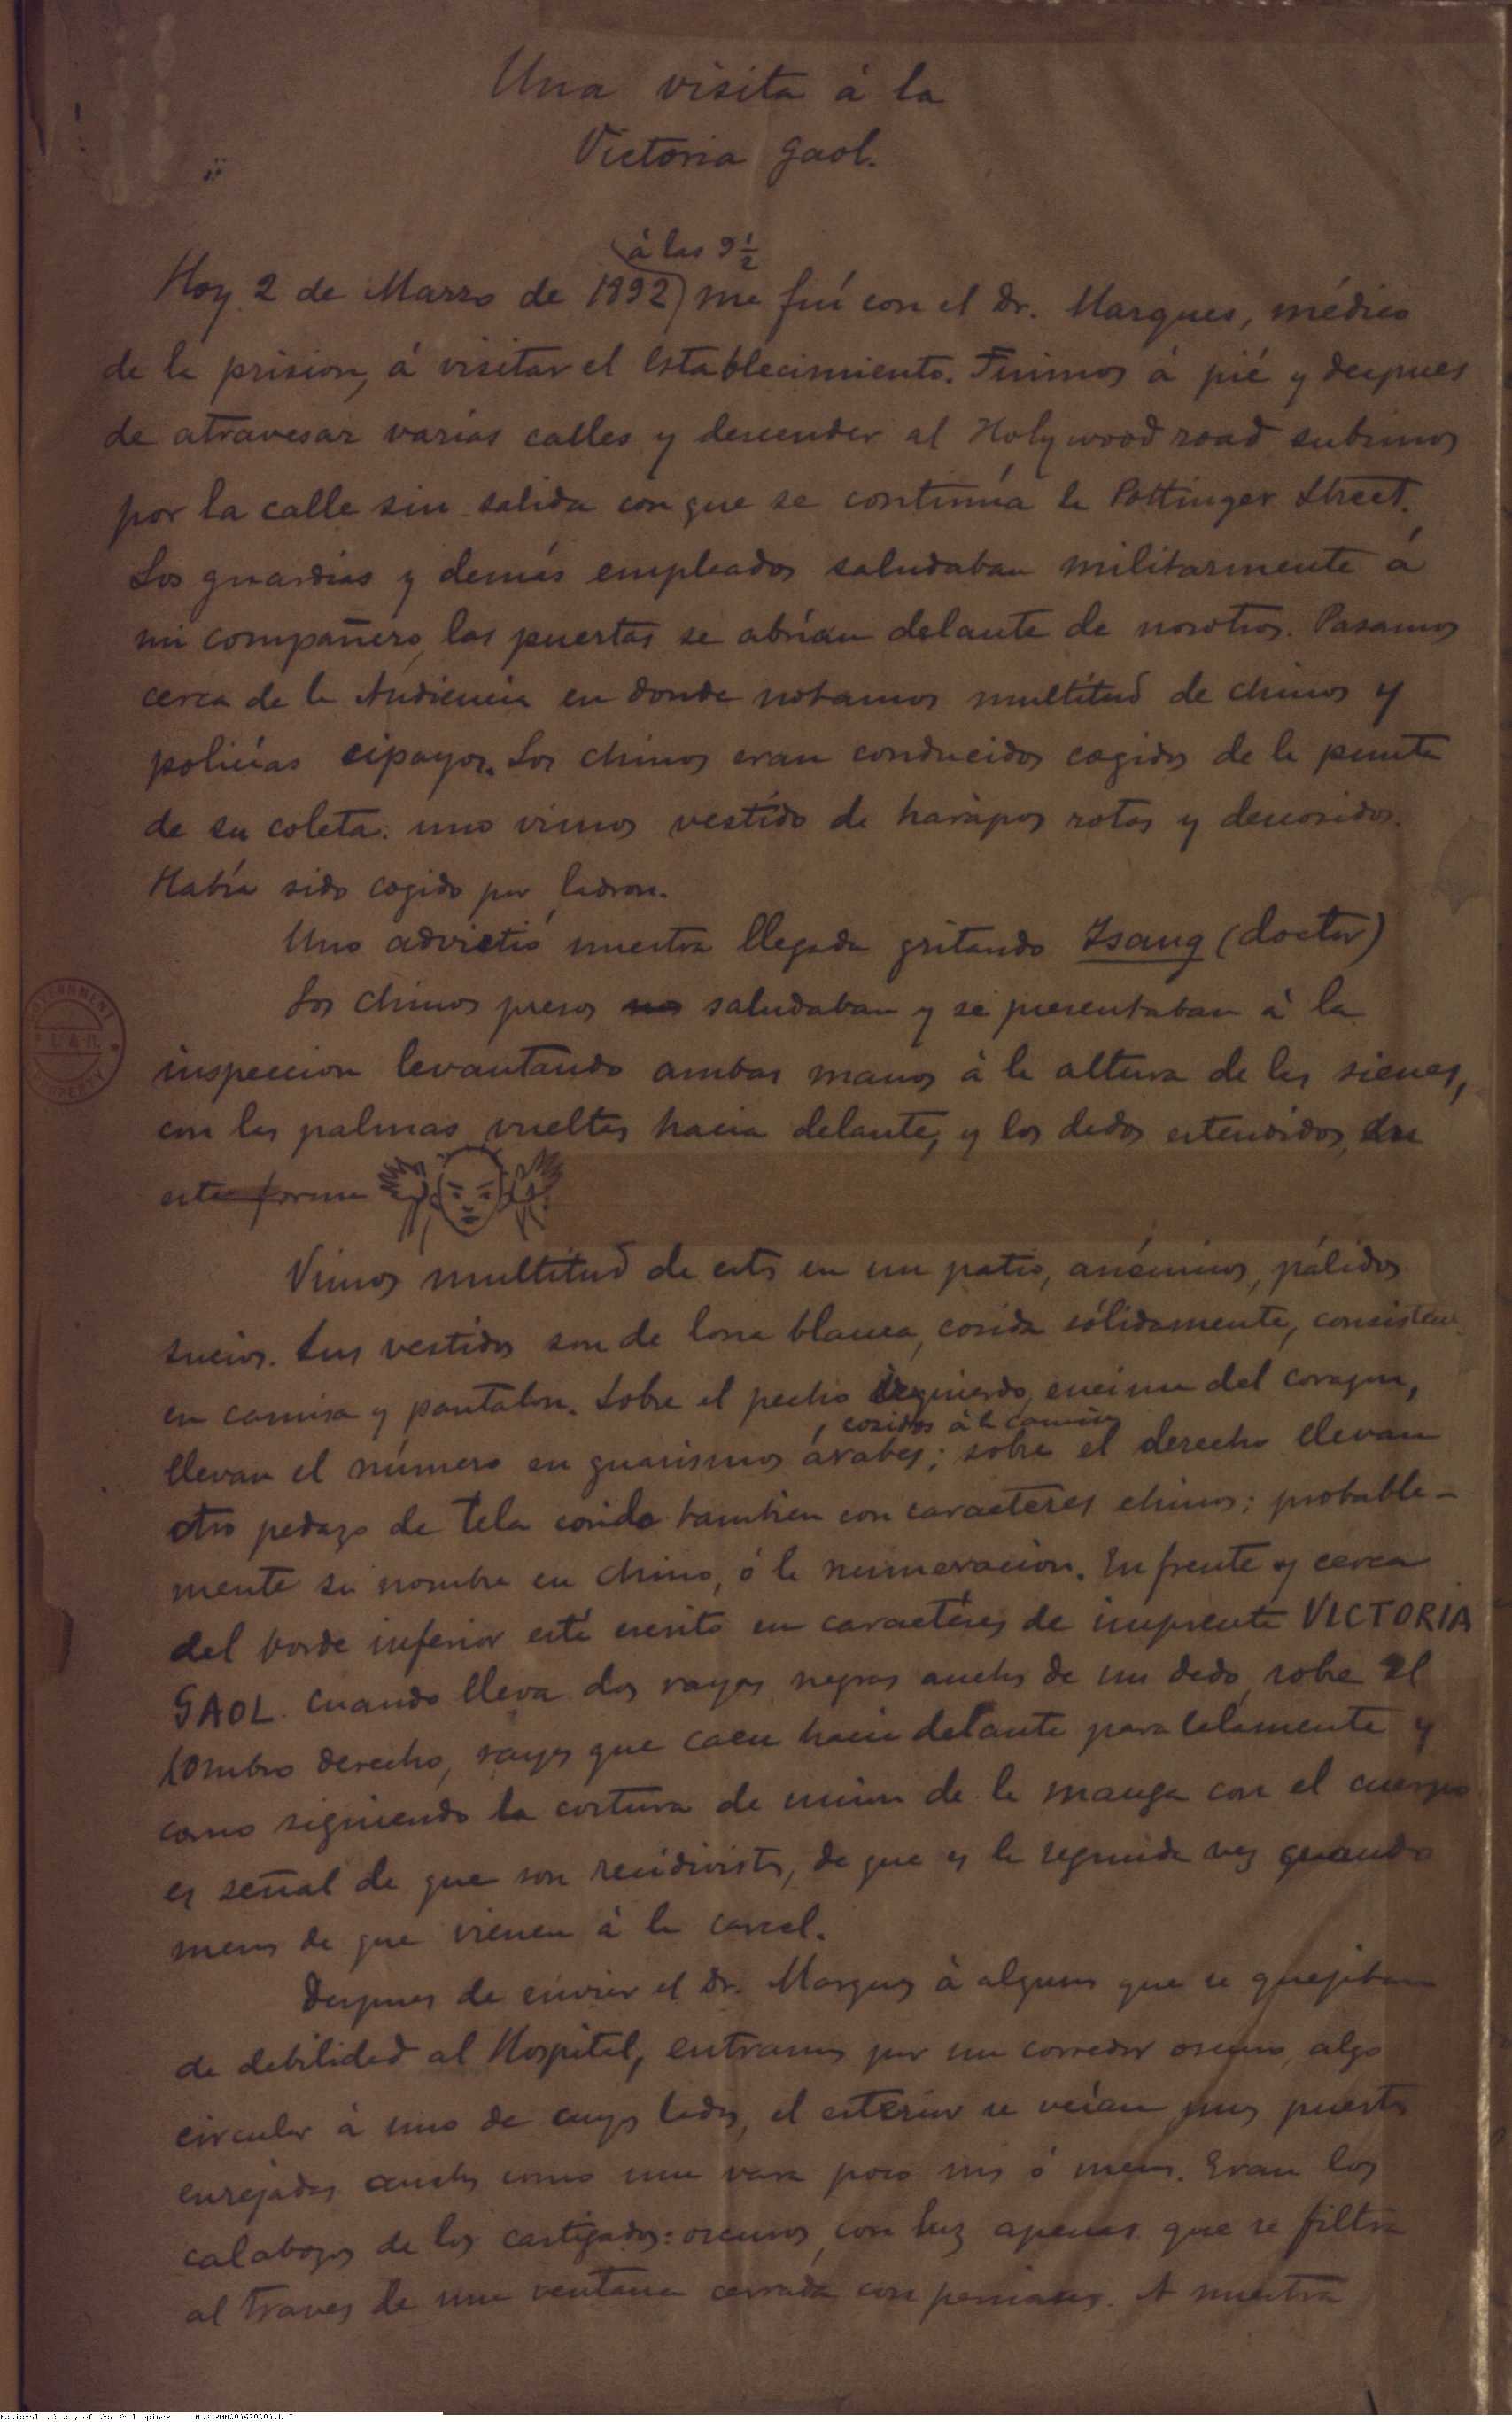 Una visita á la
Victoria Gaol.
á las 9 1/2
Hoy 2 de Marzo de 1892 me fuí con el Dr. Marques, médico
de la prision, á visitar el establecimiento. Fuimos á pié y despues
de atravesar varias calles y descender al Holywood road subimos
por la calle sin salida con que se continúa la Pottinger Street.
Los guardias y demás empleados saludaban militarmente á
mi compañero, las puertas se abrían delante de nosotros. Pasamos
cerca de la Audiencia en donde notamos multitud de chinos y
policías cipayos. Los chinos eran conducidos cogidos de la punta
de su coleta: uno vimos vestido de harapos rotos y descosidos.
Había sido cogido por ladron.
Uno advirtió nuestra llegada gritando Isang (doctor)
Los chinos presos nos saludaban y se presentaban á la
inspeccion levantando ambas manos á la altura de las sienes,
con las palmas vueltas hacia delante, y los dedos estendidos, de
esta forma
Vimos multitud de estos en un patio, anémicos, pálidos
sucios. Sus vestidos son de lona blanca, cosida sólidamente, consisten
en camisa y pantalon. Sobre el pecho izquierdo, encima del corazon,
, cosidos á la camisa
llevan el número en guarismos árabes; sobre el derecho llevan
otro pedazo de tela cosido tambien con caracteres chinos: probable-
mente su nombre en chino, ó la numeracion. En frente y cerca
del borde inferior está escrito en caractéres de imprenta VICTORIA
GAOL. Cuando lleva dos rayas negras anchas de un dedo sobre el
hombro derecho, rayas que caen hacia delante paralelamente y
como siguiendo la costura de union de la manga con el cuerpo
es señal de que son recidivistas, de que es la segunda vez cuando
menos de que vienen á la carcel.
Despues de enviar el Dr. Marques á algunos que se quejaban
de debilidad al Hospital, entramos por un corredor oscuro, algo
circular á uno de cuyos lados, el esterior se veían unas puertas
enrejadas anchas como una vara poco mas ó menos. Eran los
calabozos de los castigados: oscuros, con luz apenas que se filtra
al traves de una ventana cerrada con persianas. A nuestra
GOVERNMENT
PROPERTY
National Library of the Philippines